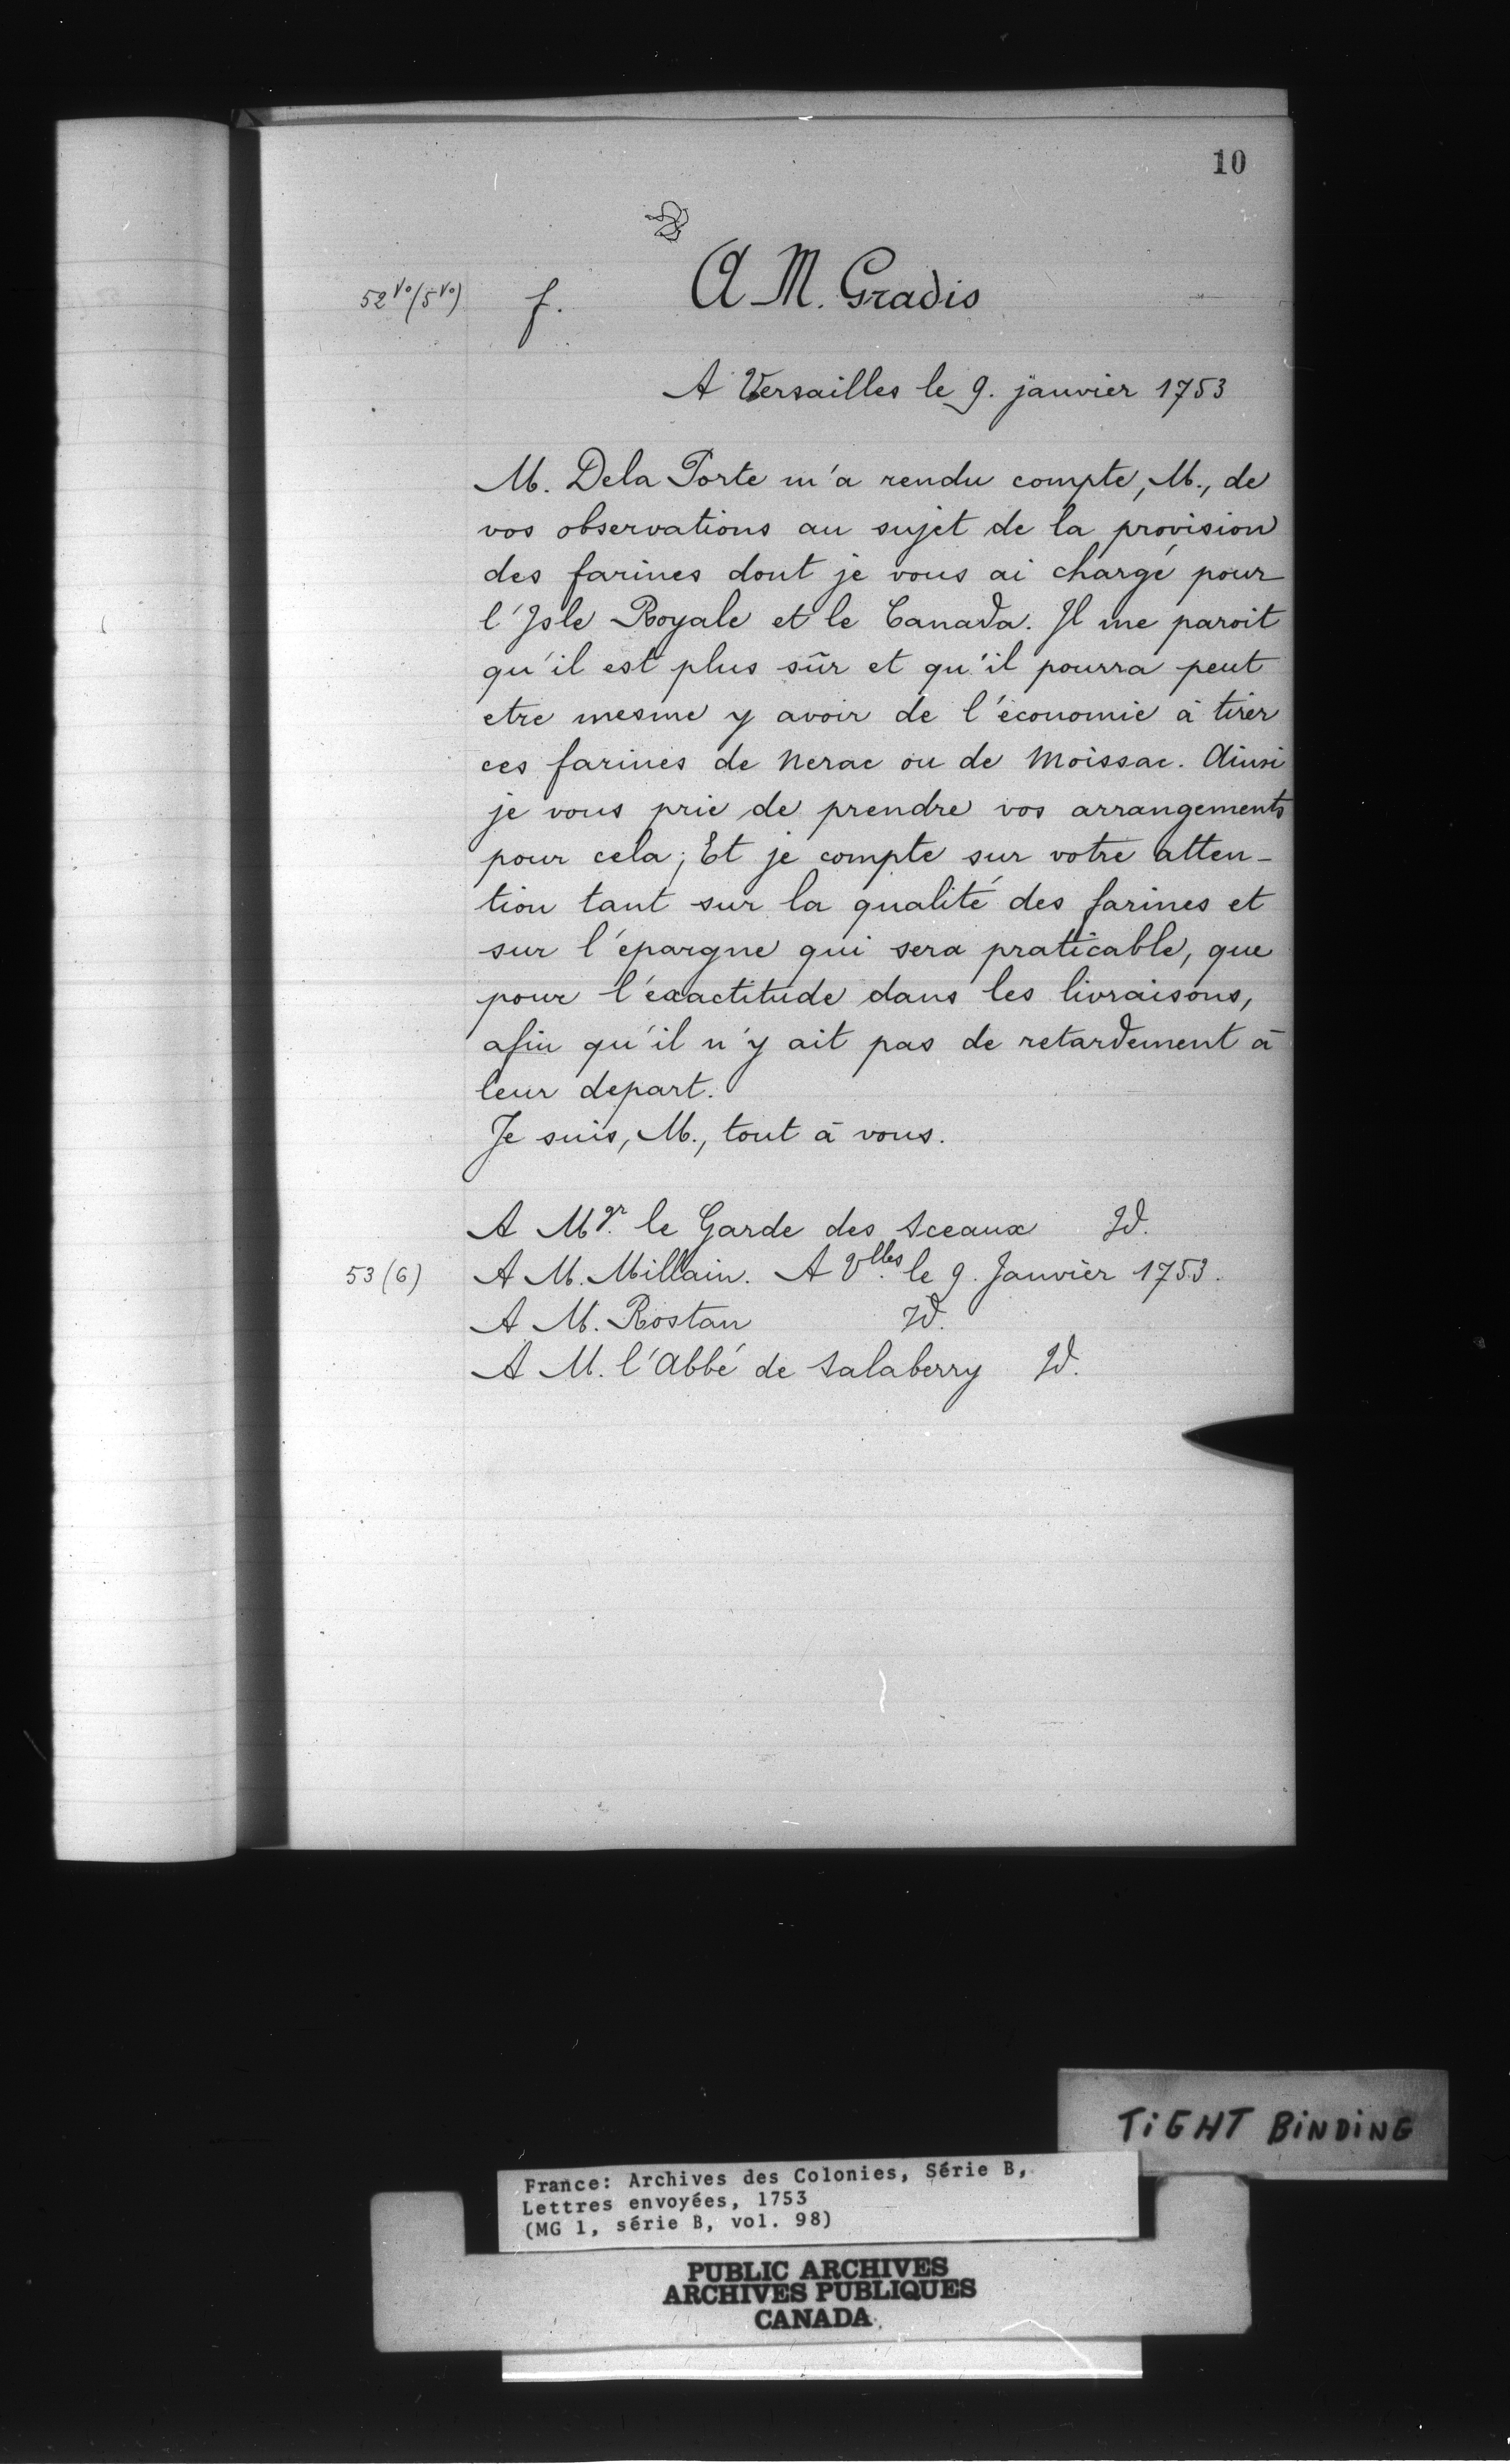 10
52 vo (5 vo) f. A M. Gradis
A Versailles le 9. janvier 1753
M. Dela Porte m'a rendu compte, M., de
vos observations au sujet de la provision
des farines dont je vous ai chargé pour
l'Isle Royale et le Canada. Il me paroit
qu'il est plus sûr et qu'il pourra peut
etre mesme y avoir de l'économie à tirer
ces farines de Nerac ou de Moissac. Ainsi
je vous prie de prendre vos arrangements
pour cela; Et je compte sur votre atten-
tion tant sur la qualité des farines et
sur l'épargne qui sera praticable, que
pour l'éxactitude dans les livraisons,
afin qu'il n'y ait pas de retardement à
leur depart.
Je suis, M., tout à vous.
A Mgr. le Garde des Sceaux Id.
53 (6) A M. Millain. A Vlles le 9. Janvier 1753.
A M. Rostan Id.
A M. l'Abbé de Salaberry Id.
TIGHT BINDING
France: Archives des Colonies, Série B,
Lettres envoyées, 1753
(MG 1, série B, vol. 98)
PUBLIC ARCHIVES
ARCHIVES PUBLIQUES
CANADA